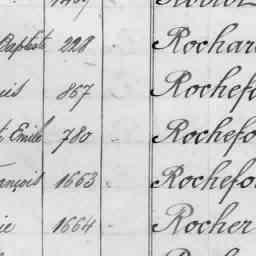 Baptiste 228 Rochar
is 867 Rochefo
Emile 780 Rochefo
ançois 1663 Rochefo
ie 1664 Rocher